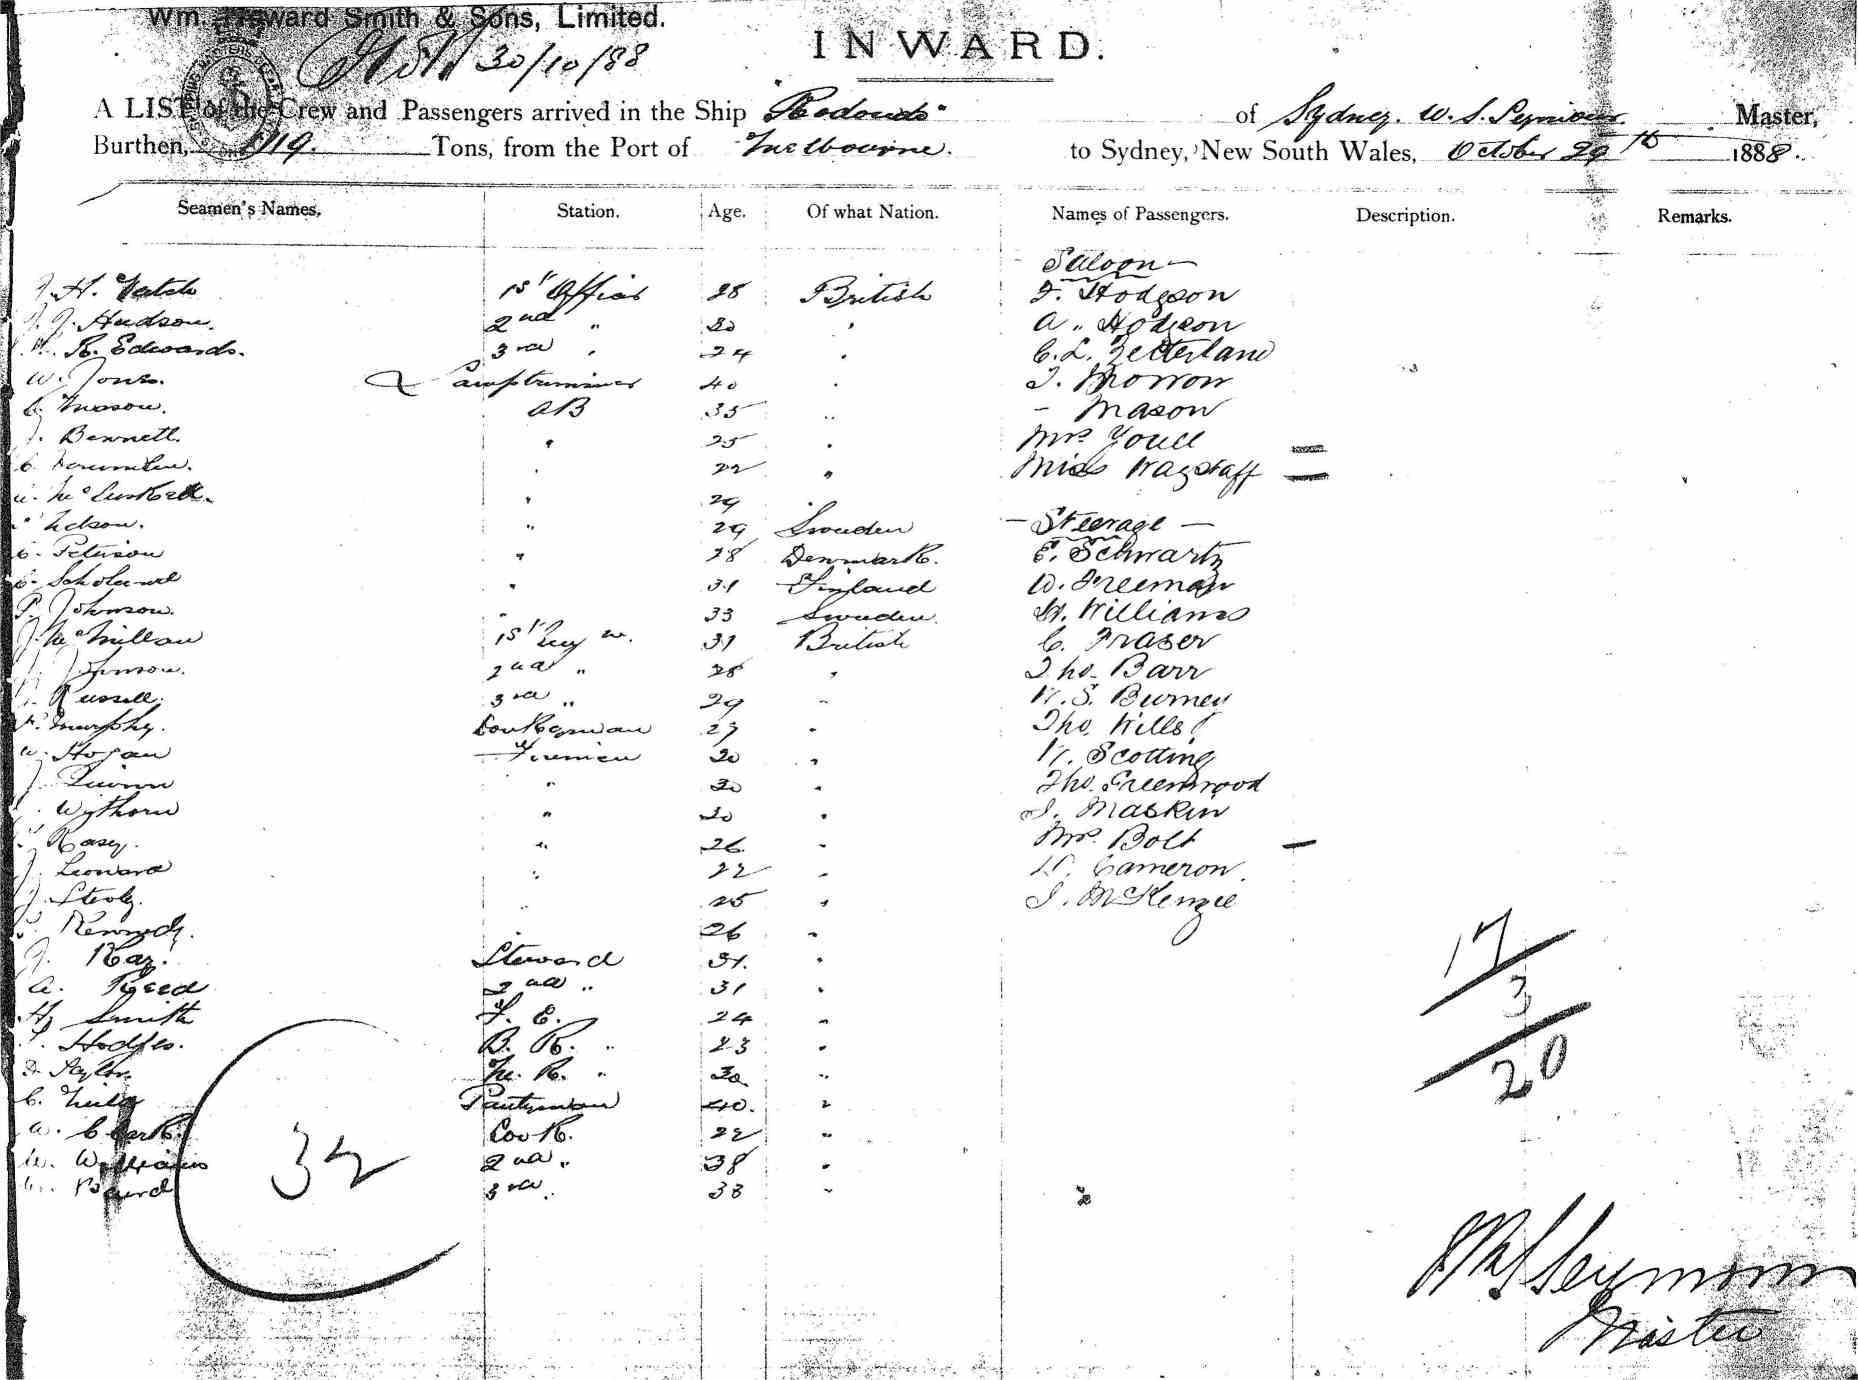 Wm. Howard Smith & Sons, Limited.
30/10/88
INWARD.
A LIST of the Crew and Passengers arrived in the Ship "Rodondo" of Sydney. W. S. Seymour Master,
Burthen, 1119. Tons, from the Port of Melbourne. to Sydney, New South Wales, October 29th 1888.
Seamen's Names. Station. Age. Of what Nation. Names of Passengers. Description. Remarks.
Saloon
J. H. Veitch 1st Officer 28 British F. Hodgson
J. J. Hudson. 2nd " 30 " A. Hodgson
R. Edwards. 3rd " 24 " C. L. Zetterland
W. Jones. Lamptrimmer 40 " T. Morrow
C. Mason. AB 35 " - Mason
J. Bennett. " 25 " Mrs. Youll
22 " Miss Wagstaff
" 29
Nelson. " 29 Sweden - Steerage -
C. Peterson " 28 Denmark. E. Schwartz
" 31 Finland W. Freeman
P. Johnson. " 33 Sweden. W. Williams
J. McMillan 1st Eng r. 31 British C. Fraser
J. Johnson. 2nd " 28 " Tho. Barr
Russell. 3rd " 29 " W. S. Burney
Murphy. Donkeyman 27 " Tho. Wills
W. Hogan Firemen 30 " W. Scotting
J. Quinn " 30 " Tho. Greenwood
Wythorn " 30 " J. Maskin
Kasey. " 26 " Mrs. Bolt
J. Leonard " 22 " D. Cameron.
J. Steely. " 25 " J. McKenzie
Kennedy. 26 "
J. Kay. Steward 31. "
A. Reed 2nd " 31 "
H. Smith F. C. 24 "
Hodges. B. R. " 23 "
D. Taylor. M. R. " 30 "
C. Pantryman 40. "
W. Clark. Cook. 22 "
W. Williams 2nd " 38 "
Baird 3rd " 33 "
32
17
3
20
W S Seymour
Master